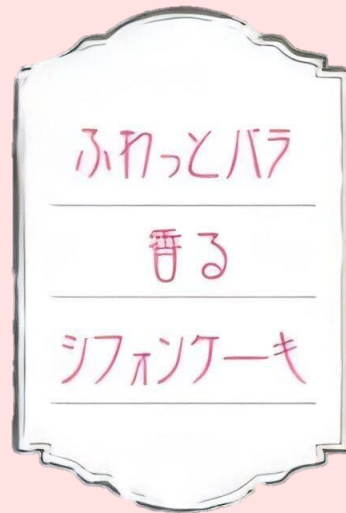 ふわっとバラ
香る
シフォンケーキ